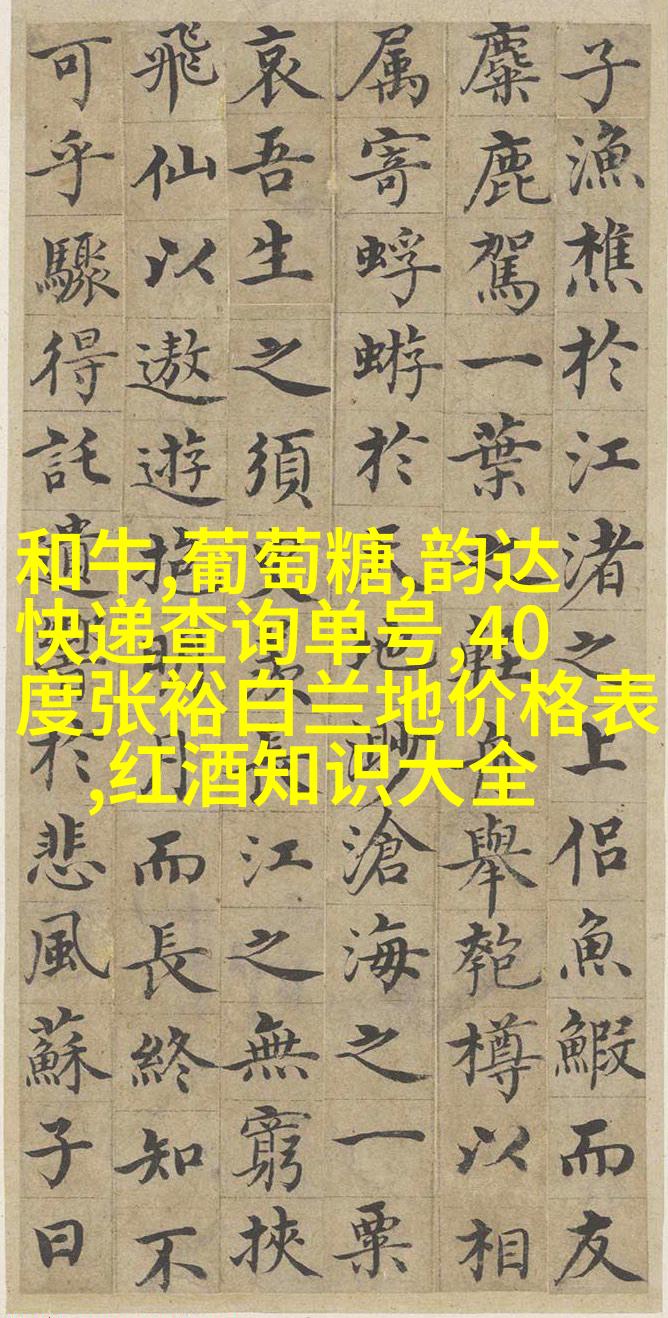 子漁樵於江渚之上侣魚鰕而友
麋鹿駕一葉之輕舟舉匏樽以相
属寄蜉蝣於天地渺滄海之一粟
哀吾生之須臾羨長江之無窮挾
飛仙以遨遊抱明月而長終知不
可乎驟得託遺響於悲風蘇子曰
和牛,葡萄糖,韵达
快递查询单号,40
度张裕白兰地价格表
,红酒知识大全